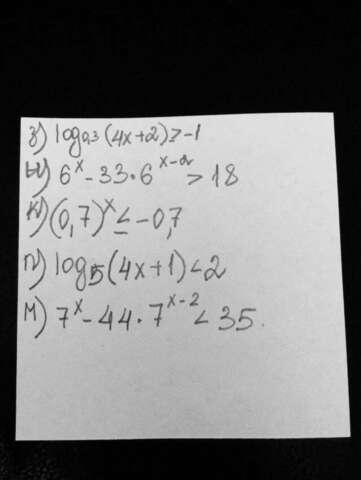 з) log₀,₃(4x+2)≥-1
ы) 6ˣ-33·6ˣ⁻²>18
к) (0,7)ˣ≤-0,7
п) log₅(4x+1)<2
м) 7ˣ-44·7ˣ⁻²<35.